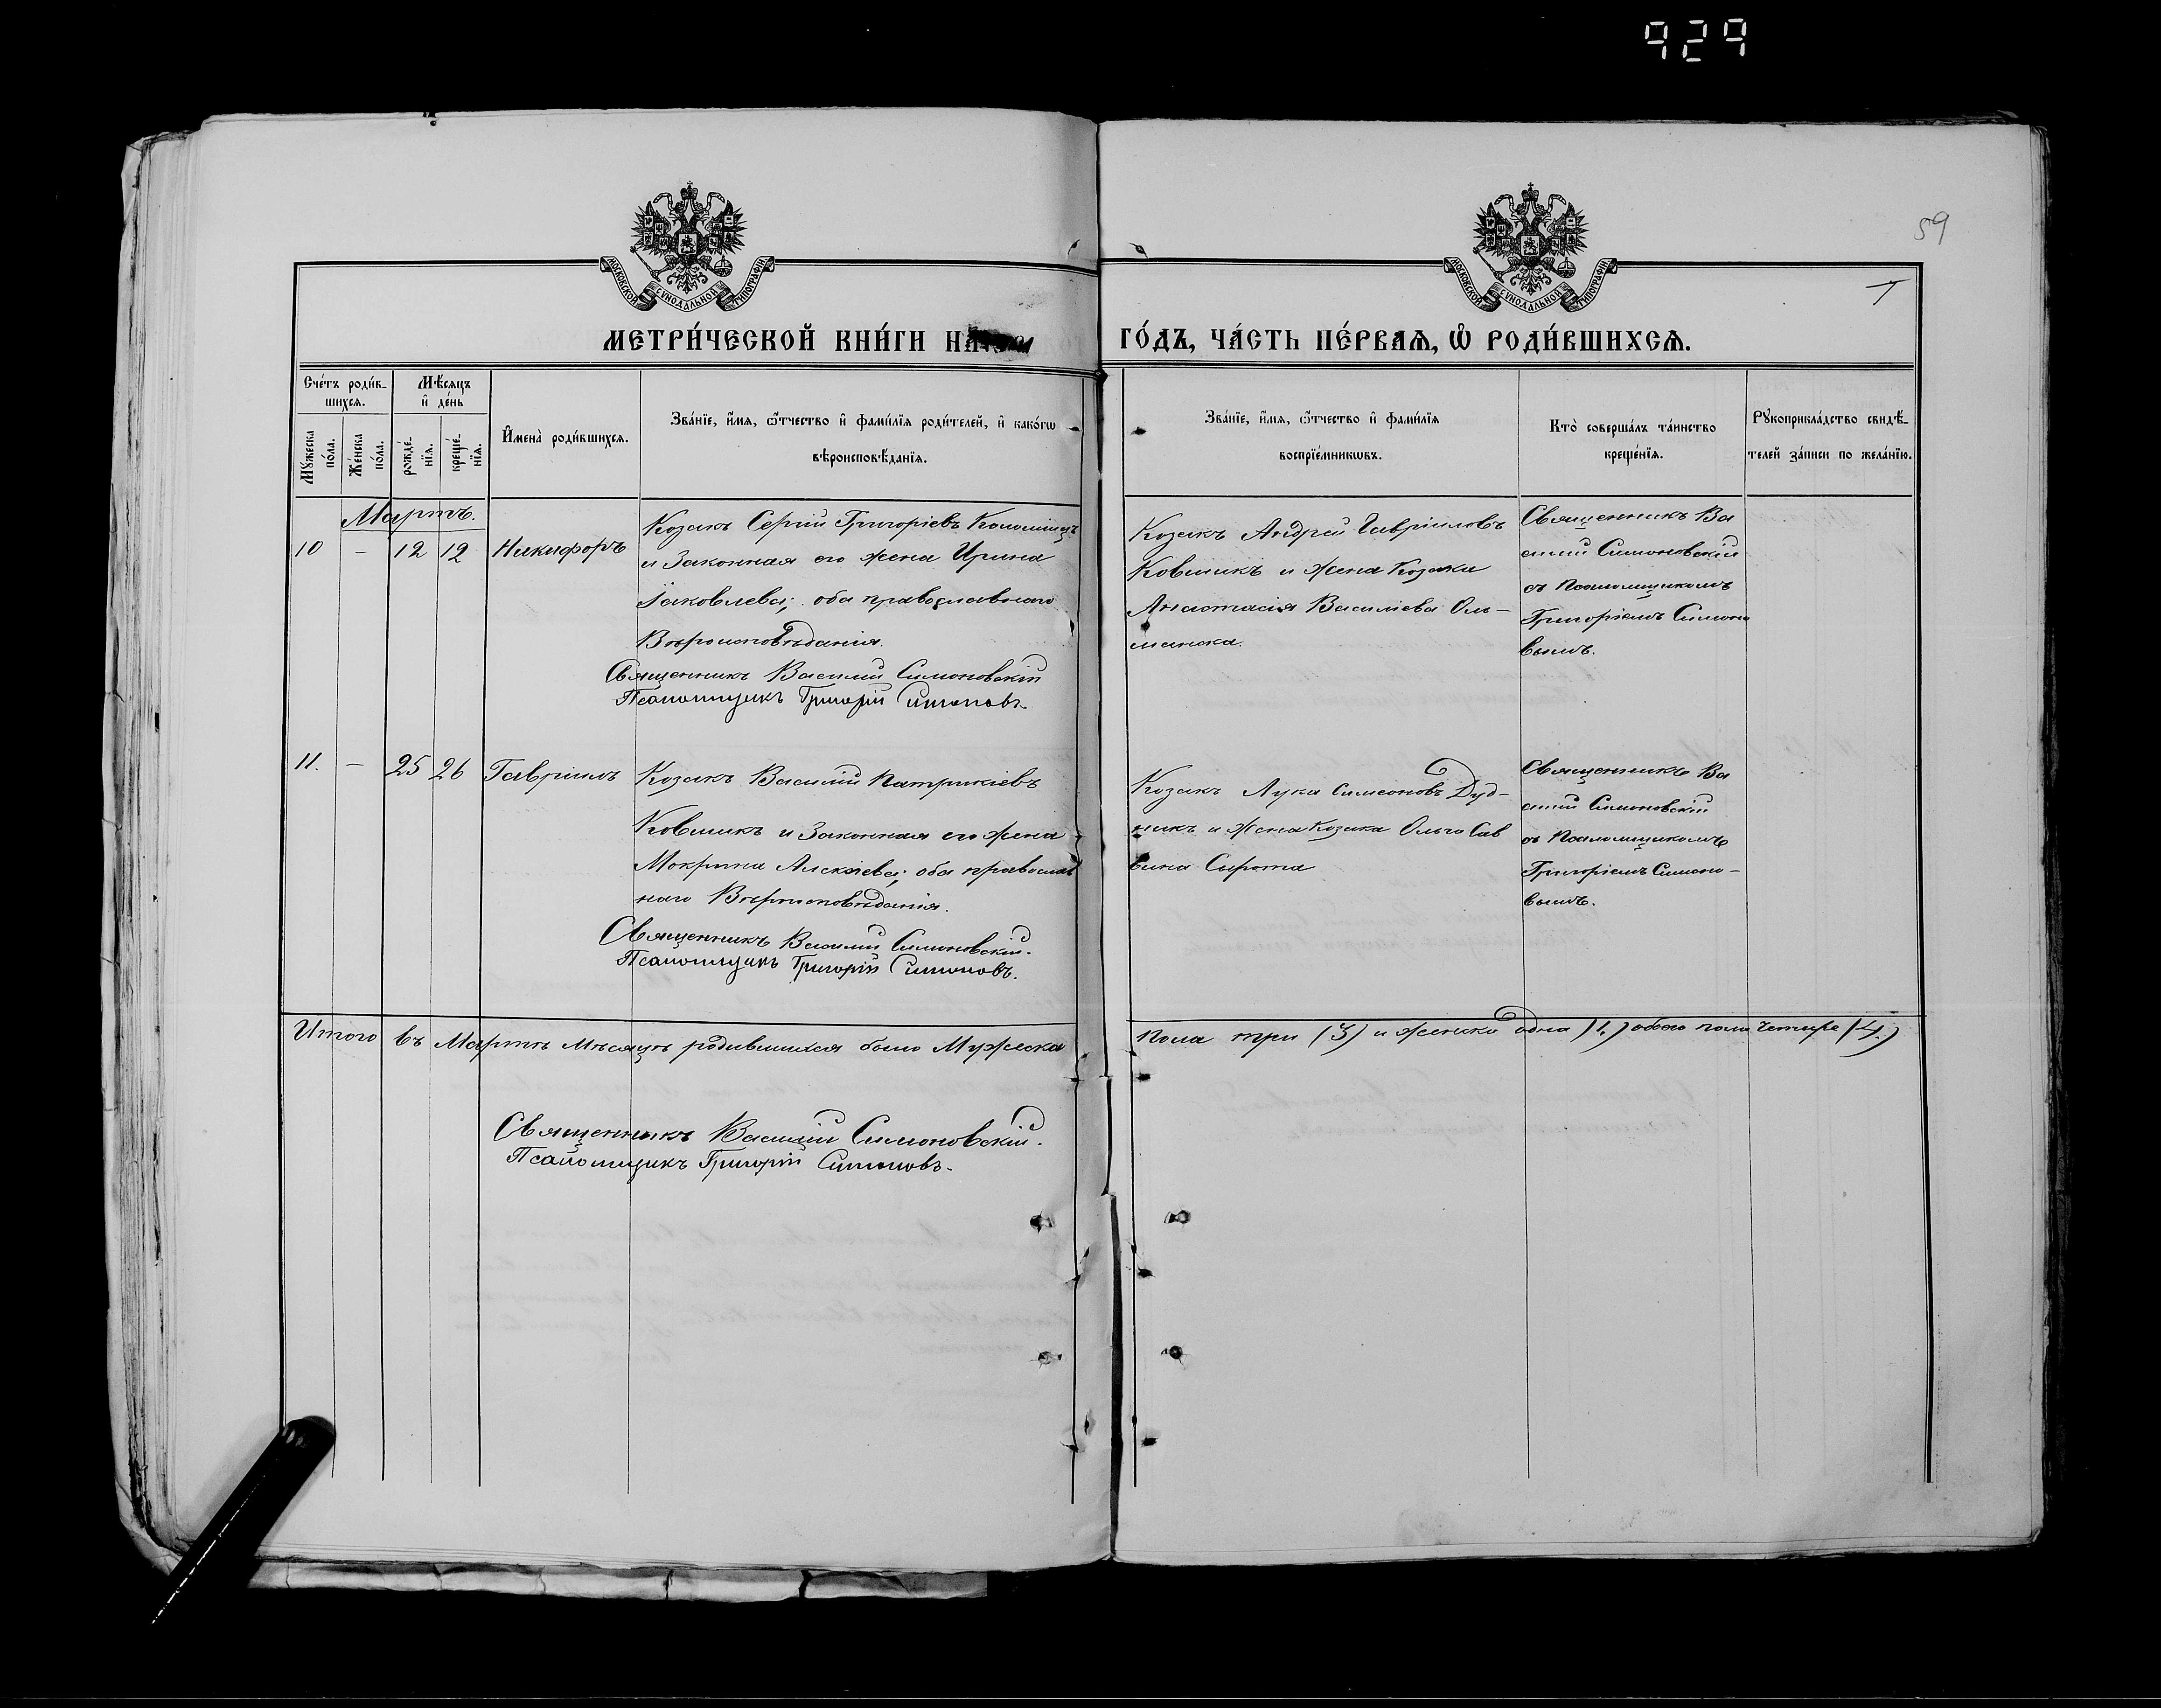 929
59
МОСКОВСКОЙ СѴНОДАЛЬНОЙ ТИПОГРАФІИ
МОСКОВСКОЙ СѴНОДАЛЬНОЙ ТИПОГРАФІИ
МЕТРИ́ЧЕСКОЙ КНИ́ГИ НА
ГО́ДЪ, ЧА́СТЬ ПЕ́РВАѦ, Ѡ РОДИ́ВШИХСѦ.
Сче́тъ роди́в-
шихсѧ.
Мѣ́сѧцъ
и҆ де́нь
Мꙋжеска по́ла.
Же́нска по́ла.
рожде́-нїѧ.
креще́-нїѧ.
И҆мена̀ роди́вшихсѧ.
Зва́нїе, и҆́мѧ, ѻ҆́тчество и҆ фами́лїѧ роди́телей, и҆ како́гѡ
вѣроисповѣ́данїѧ.
Зва́нїе, и҆́мѧ, ѻ҆́тчество и҆ фами́лїѧ
воспрїе́мникѡвъ.
Кто̀ соверша́лъ та́инство
креще́нїѧ.
Рꙋкоприкла́дство свидѣ́-
телей за́писи по жела́нїю.
Мартъ.
10 – 12 12 Никифоръ
Козакъ Сергій Григоріевъ Коломіецъ
и Законная его жена Ирина
Іаковлева; оба православнаго
Вѣроисповѣданія.
Священникъ Василій Симоновскій
Псаломщикъ Григорій Симоновъ
Козакъ Андрей Гавріиловъ
Ковшикъ и жена Козака
Анастасія Василіева Оль-
манска.
Священникъ Ва
силій Симоновскій
съ Псаломщикомъ
Григоріемъ Симоно
вымъ.
11. – 25 26 Гавріилъ
Козакъ Василій Патрикіевъ
Ковшикъ и Законная его жена
Мокрина Алексіева; оба православ
наго Вѣроисповѣданія.
Священникъ Василій Симоновскій.
Псаломщикъ Григорій Симоновъ.
Козакъ Лука Симеоновъ Дуд-
никъ и жена Козака Ольга Сав
вина Сырота
Священникъ Ва
силій Симоновскій
съ Псаломщикомъ
Григоріемъ Симоно-
вымъ.
Итого въ Мартѣ мѣсяцѣ родившихся было Мужеска
пола три (3) и женска одна (1.) обоего пола четыре (4.)
Священникъ Василій Симоновскій.
Псаломщикъ Григорій Симоновъ.